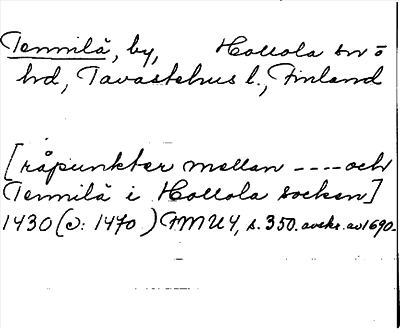 Tennilä, by, Hollola sn o
hd, Tavastehus l., Finland
[råpunkter mellan ---- och
Tennilä i Hollola socken]
1430 (o: 1470) FMU 4, s. 350. avskr. av 1690-